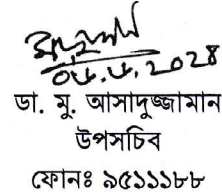 ০৮.৮.২০২৪
ডা. মু. আসাদুজ্জামান
উপসচিব
ফোনঃ ৯৫১১১৮৮